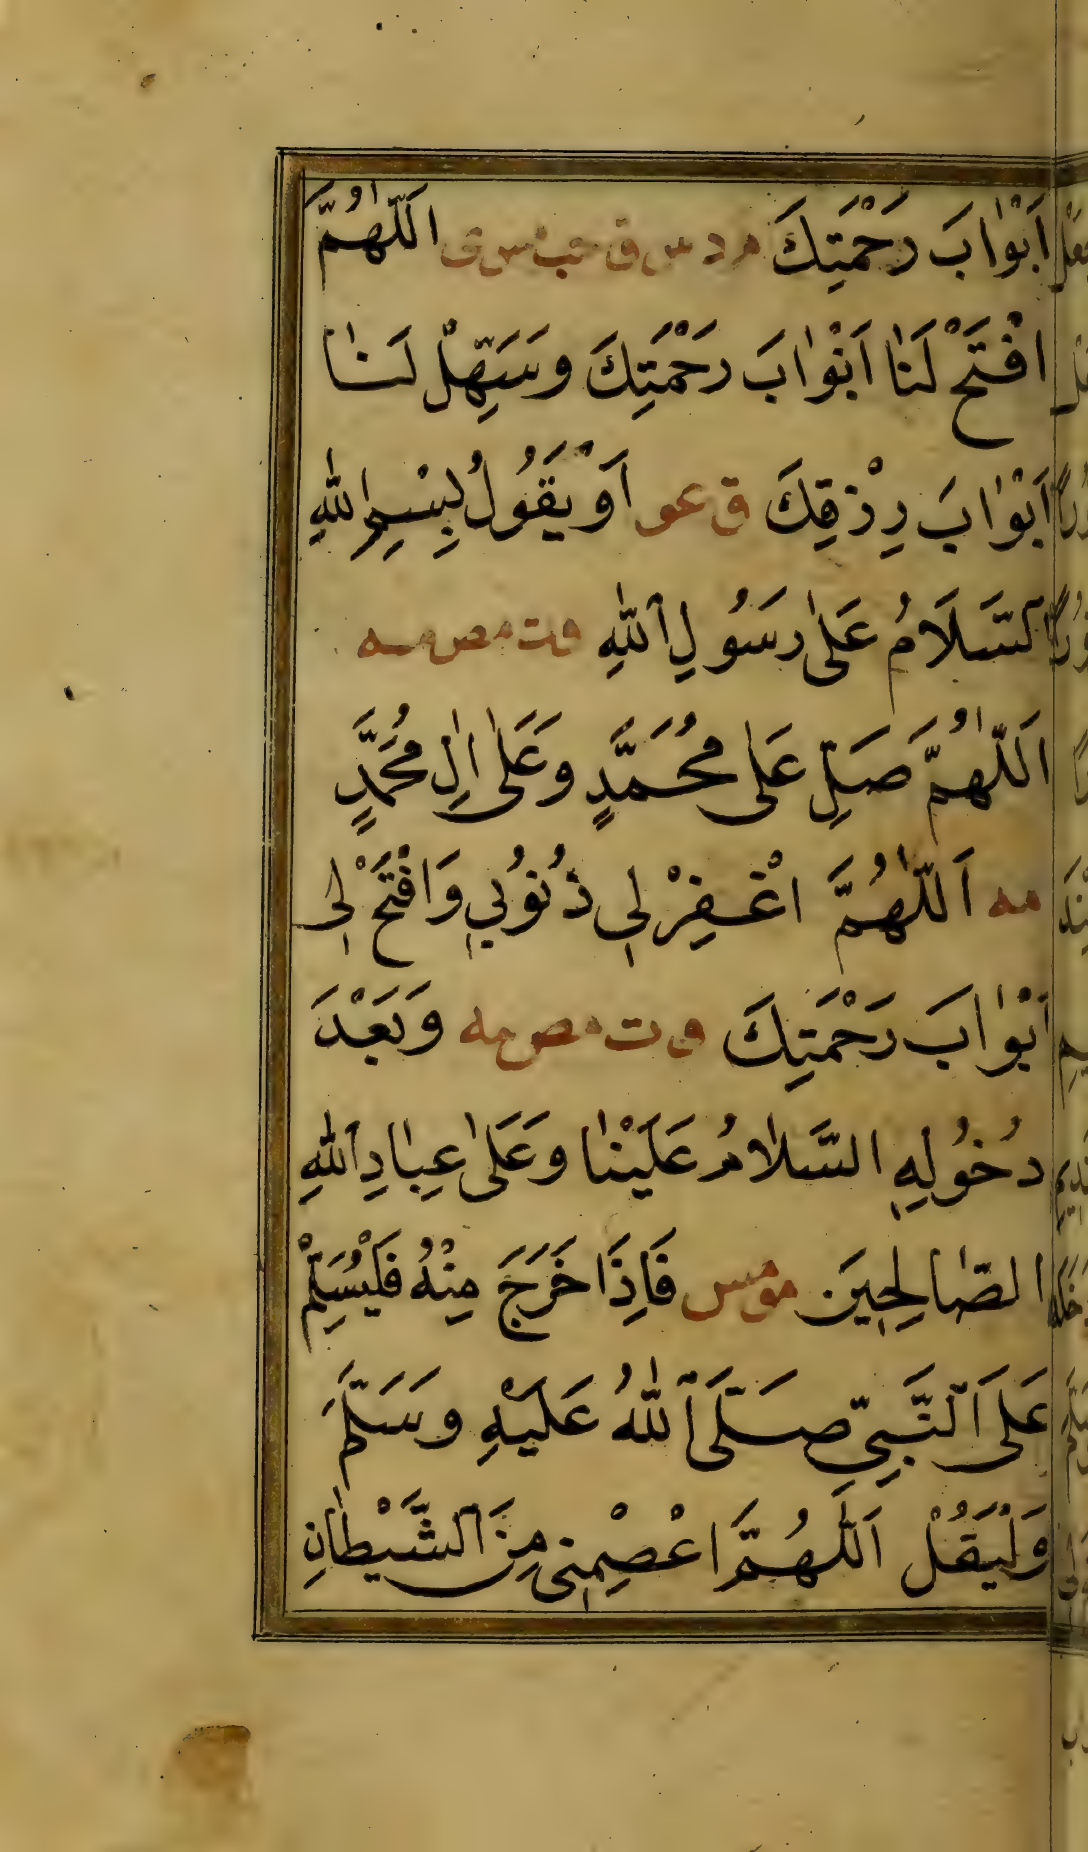 اَبْوٰابَ رَحْمَتِكَ م د س ق حب س ى اَللّٰهُمَّ
افْتَحْ لَنٰا اَبْوٰابَ رَحْمَتِكَ وَسَهِّلْ لَنٰا
اَبْوٰابَ رِزْقِكَ ق عو اَوْ يَقُولُ بِسْمِ اللّٰهِ
اَلسَّلَامُ عَلٰى رَسُولِ اللّٰهِ ق ت مص مه
اَللّٰهُمَّ صَلِّ عَلٰى مُحَمَّدٍ وَعَلٰى اٰلِ مُحَمَّدٍ
مه اَللّٰهُمَّ اغْفِرْ لِى ذُنُوبِي وَافْتَحْ لِى
اَبْوٰابَ رَحْمَتِكَ ق ت مص مه وَبَعْدَ
دُخُولِهِ السَّلٰامُ عَلَيْنٰا وَعَلٰى عِبٰادِ اللّٰهِ
الصّٰالِحِينَ مو مس فَاِذَا خَرَجَ مِنْهُ فَلْيُسَلِّمْ
عَلَى النَّبِيِّ صَلَّى اللّٰهُ عَلَيْهِ وَسَلَّمَ
وَلْيَقُلْ اَللّٰهُمَّ اعْصِمْنِى مِنَ الشَّيْطٰانِ